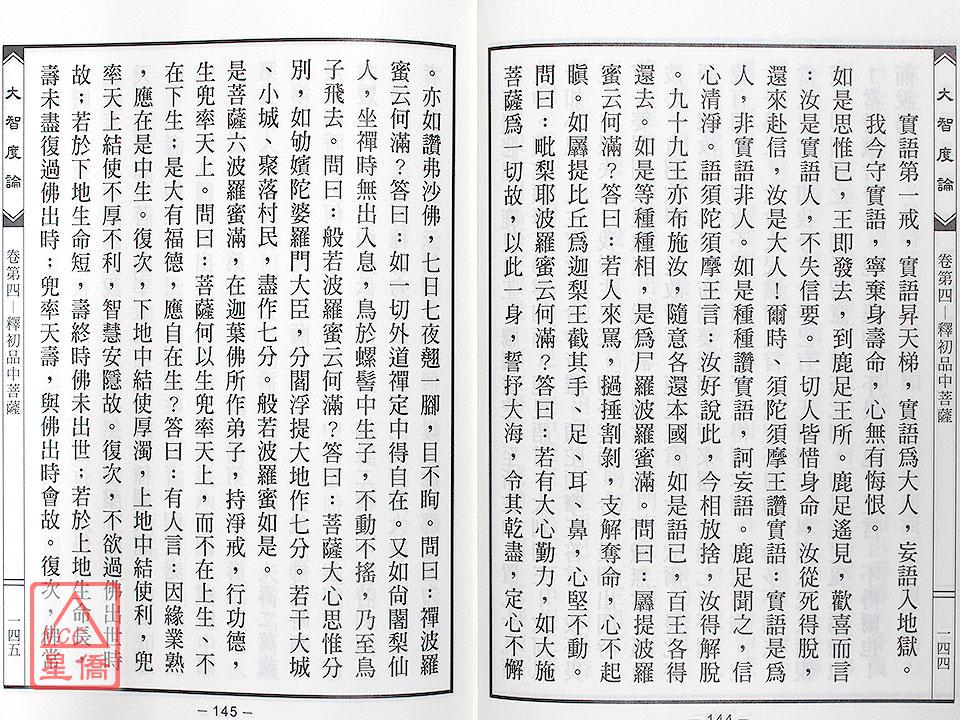 大智度論
卷第四－釋初品中菩薩
一四四
實語第一戒，實語昇天梯，實語爲大人，妄語入地獄。
我今守實語，寧棄身壽命，心無有悔恨。
如是思惟已，王即發去，到鹿足王所。鹿足遙見，歡喜而言
：汝是實語人，不失信要。一切人皆惜身命，汝從死得脫，
還來赴信，汝是大人！爾時、須陀須摩王讚實語：實語是爲
人，非實語非人。如是種種讚實語，訶妄語。鹿足聞之，信
心清淨。語須陀須摩王言：汝好說此，今相放捨，汝得解脫
。九十九王亦布施汝，隨意各還本國。如是語已，百王各得
還去。如是等種種相，是爲尸羅波羅蜜滿。問曰：羼提波羅
蜜云何滿？答曰：若人來罵，撾捶割剝，支解奪命，心不起
瞋。如羼提比丘爲迦梨王截其手、足、耳、鼻，心堅不動。
問曰：毗梨耶波羅蜜云何滿？答曰：若有大心勤力，如大施
菩薩爲一切故，以此一身，誓抒大海，令其乾盡，定心不懈
－144－
。亦如讚弗沙佛，七日七夜翹一腳，目不眴。問曰：禪波羅
蜜云何滿？答曰：如一切外道禪定中得自在。又如尙闍梨仙
人，坐禪時無出入息，鳥於螺髻中生子，不動不搖，乃至鳥
子飛去。問曰：般若波羅蜜云何滿？答曰：菩薩大心思惟分
別，如劬嬪陀婆羅門大臣，分閻浮提大地作七分。若干大城
、小城、聚落村民，盡作七分。般若波羅蜜如是。
是菩薩六波羅蜜滿，在迦葉佛所作弟子，持淨戒，行功德，
生兜率天上。問曰：菩薩何以生兜率天上，而不在上生、不
在下生；是大有福德，應自在生？答曰：有人言：因緣業熟
，應在是中生。復次，下地中結使厚濁，上地中結使利，兜
率天上結使不厚不利，智慧安隱故。復次，不欲過佛出世時
故；若於下地生命短，壽終時佛未出世；若於上地生命長，
壽未盡復過佛出時；兜率天壽，與佛出時會故。復次，佛常
大智度論
卷第四－釋初品中菩薩
一四五
－145－
MCC
星僑